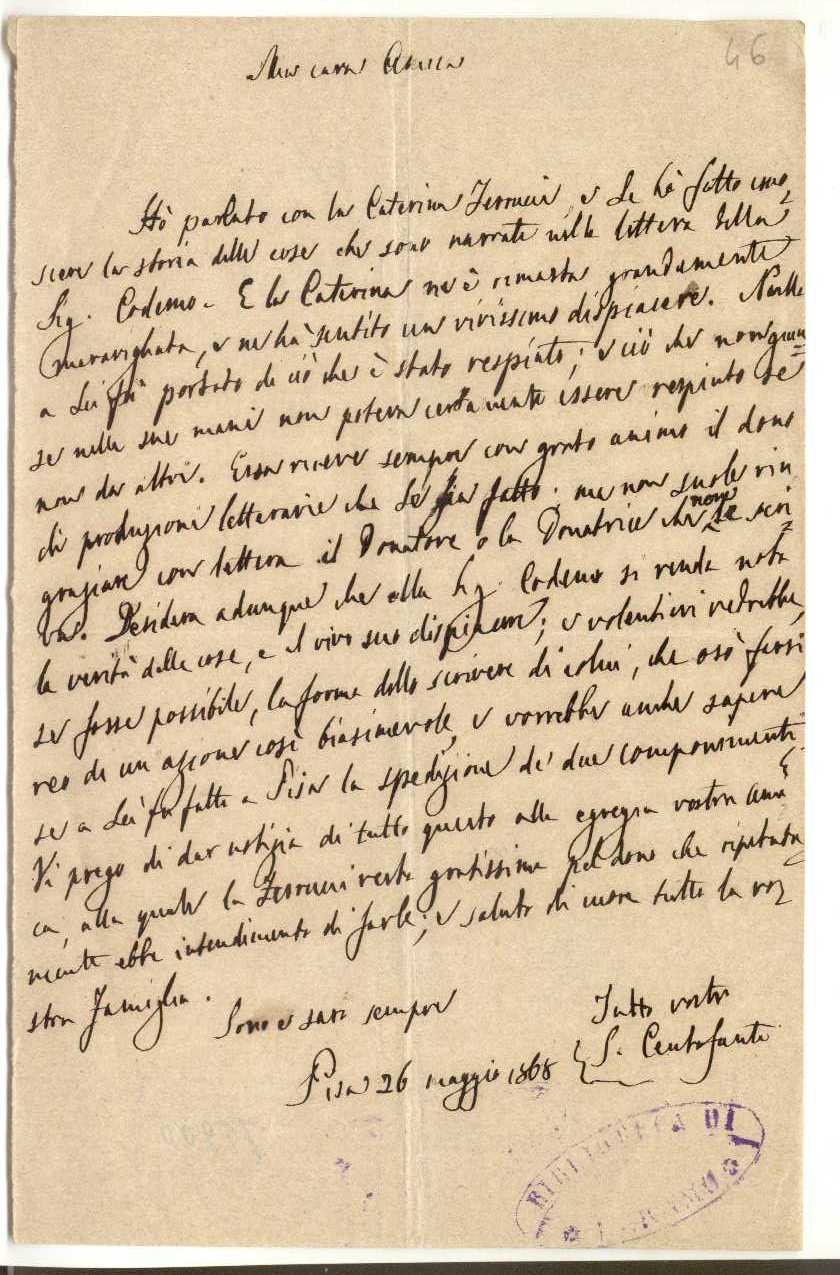 46
Mia cara Amica
Hò parlato con la Caterina Ferrucci, e Le hò fatto cono
scere la storia delle cose che sono narrate nella lettera della
Sig. Codemo. E la Caterina ne è rimasta grandemente
meravigliata, e ne hà sentito un vivissimo dispiacere. Nulla
a Lei fù portato di ciò che è stato respinto; e ciò che non giun
se nelle sue mani non poteva certamente essere respinto se
non da altri. Essa riceve sempre con grato animo il dono
di produzioni letterarie che Le sia fatto: ma non suole rin
graziare con lettera il Donatore o la Donatrice che non le scri
va. Desidera adunque che alla Sig. Codemo si renda nota
la verità delle cose, e il vivo suo dispiacere; e volentieri vedrebbe,
se fosse possibile, la forma dello scrivere di colui, che osò farsi
reo di un azione così biasimevole, e vorrebbe anche sapere
se a Lei fu fatta a Pisa la spedizione de' due componimenti.
Vi prego di dar notizia di tutto questo alla egregia vostra Ami
ca, alla quale la Ferrucci resta gratissima pel dono che ripetuta
mente ebbe intendimento di farle; e saluto di cuore tutta la vo
stra Famiglia.
Sono e sarò sempre
Tutto vostro
Pisa 26 maggio 1868 S. Centofanti
BIBLIOTECA DI